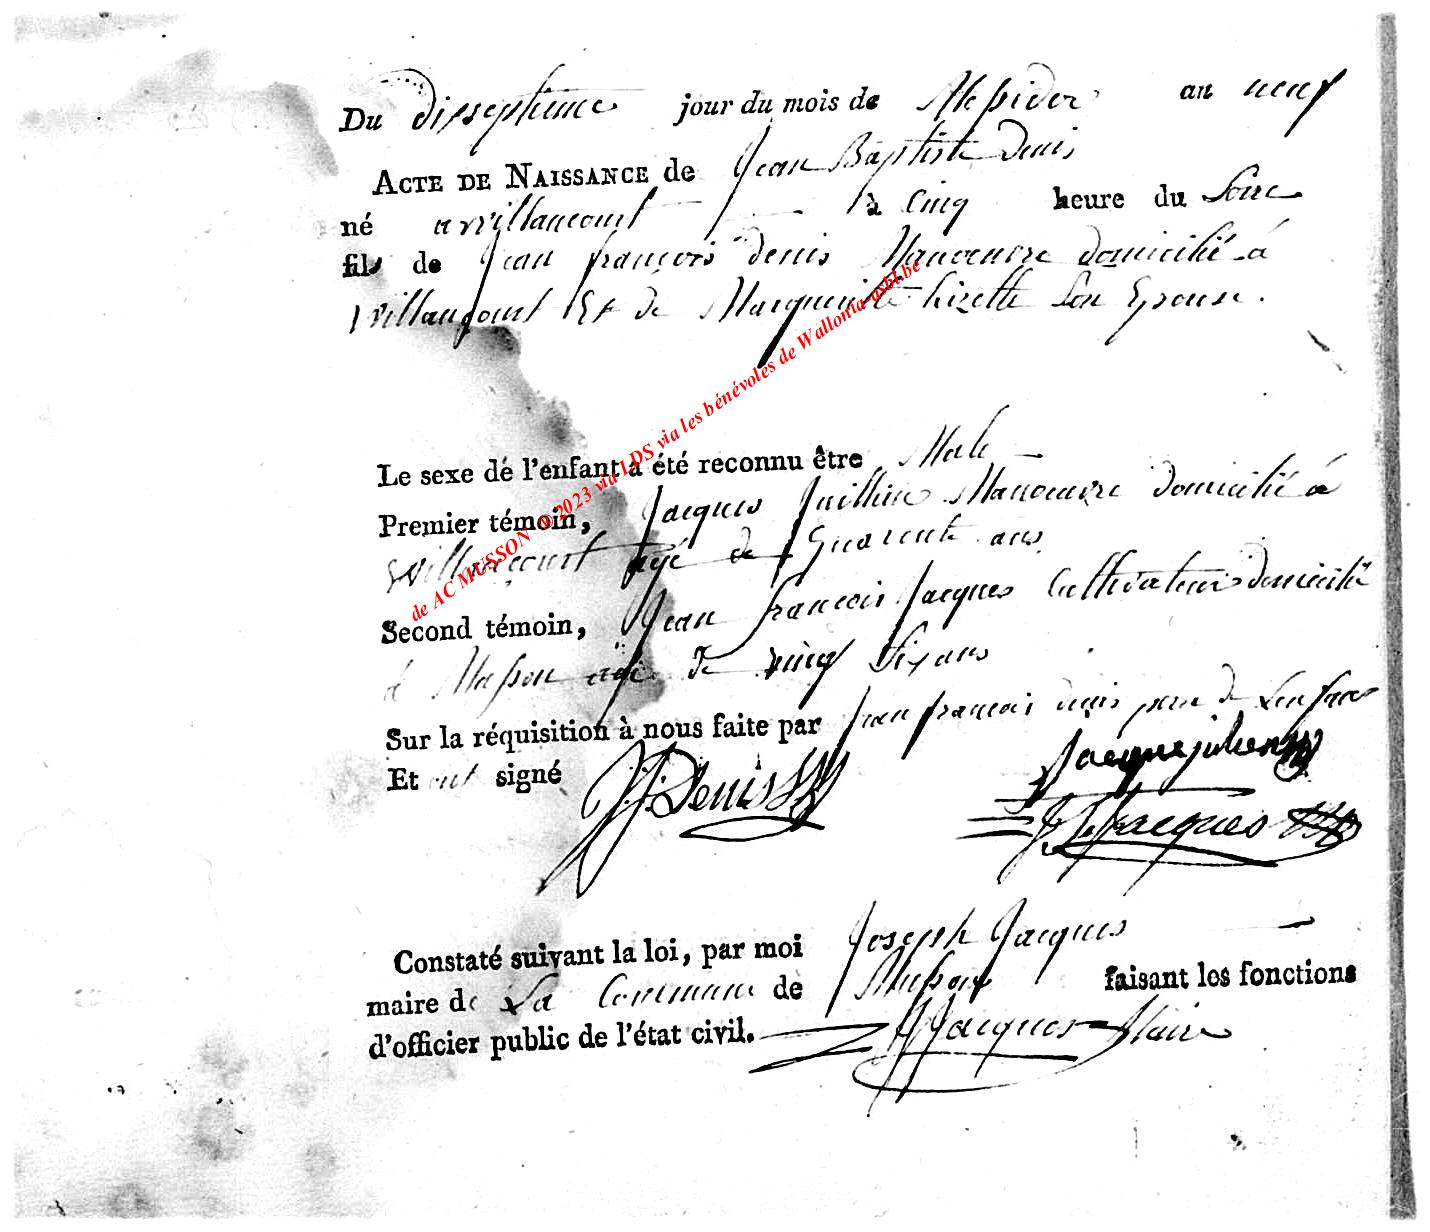 Du dixseptieme jour du mois de Messidor an neuf
ACTE DE NAISSANCE de Jean Baptiste Denis
né a willancourt à cinq heure du Soire
fils de Jean françois denis Manoeuvre domicilié à
willancourt Et de Margueritte Lizette Son Epouse.
Le sexe de l'enfant a été reconnu être Male
Premier témoin, Jacques Juillien Manoeuvre domicilié à
willancourt agé de Quarente ans
Second témoin, Jean francois Jacques Cultivateur domicilié
à Musson agé de vingt Six ans
Sur la réquisition à nous faite par jean francois denis pere de Lenfant
Et ont signé J.f. Denis Jacque julien
J f Jacques
Constaté suivant la loi, par moi Joseph Jacques
maire de La Commune de Musson faisant les fonctions
d'officier public de l'état civil. J Jacques Maire
de AC MUSSON © 2023 via LDS via les bénévoles de Wallonia-asbl.be